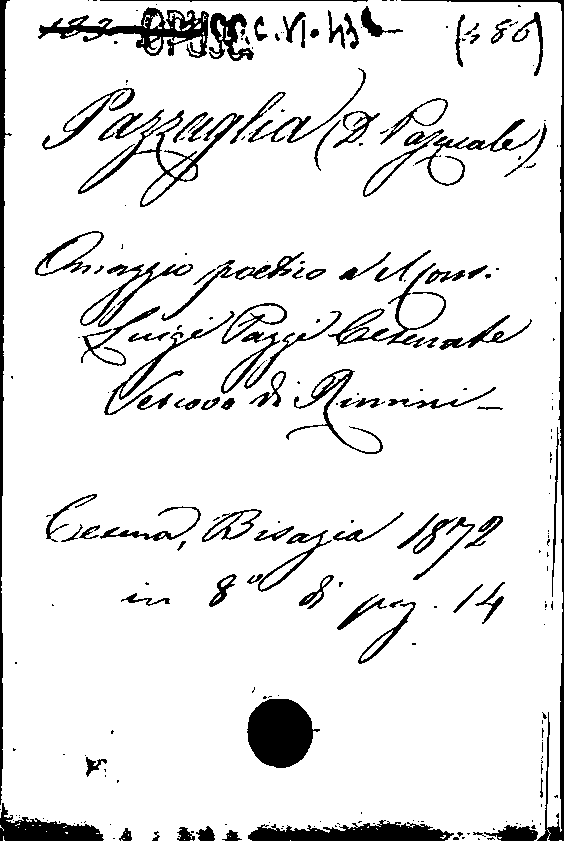 123. OPUSC C. VI. 43
Pazzaglia (D. Pasquale)
Omaggio poetico a Mons.
Luigi Paggi Cesenate
Vescovo di Rimini
Cesena, Bisazia 1872
in 8° di pag. 14